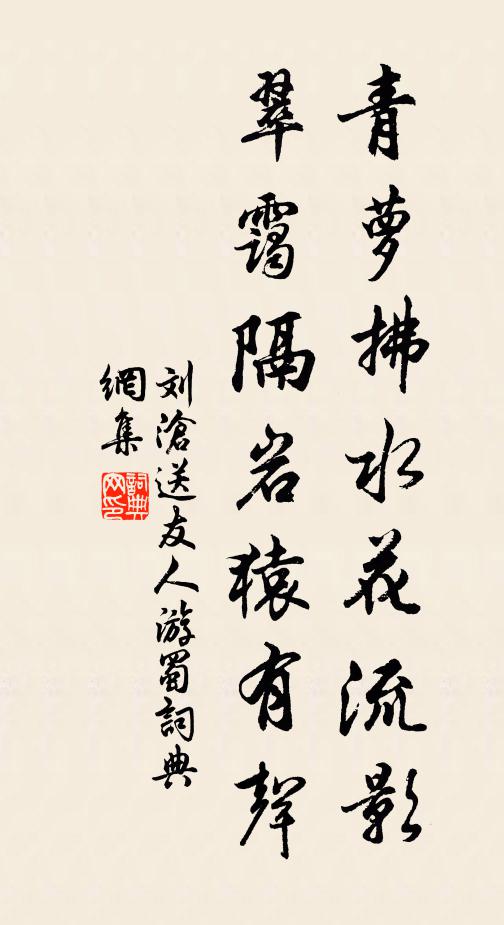 青萝拂水花流影
翠霭隔岩猿有声
刘滄送友人游蜀詞典
網集
詞典
网印